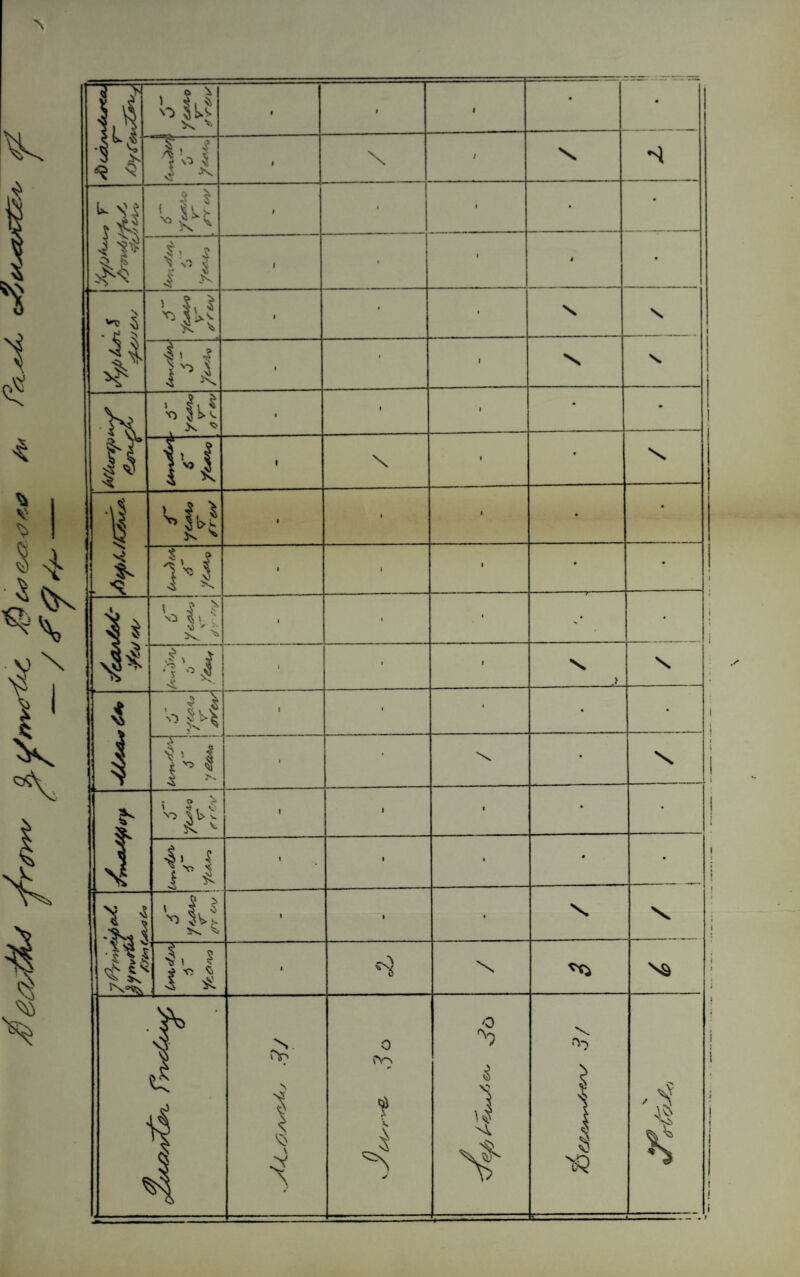 Deaths from Zymotic Diseases in Each Quarter of
— 1894 —
Quarter Ending | 7 Principal Zymotic Diseases | Smallpox | Measles | Scarlet fever | Diphtheria | Whooping Cough | Typhoid fever | Typhus & Doubtful fevers | Diarrhoea & Dysentery
under 5 years | 5 years & over | under 5 years | 5 years & over | under 5 years | 5 years & over | under 5 years | 5 years & over | under 5 years | 5 years & over | under 5 years | 5 years & over | under 5 years | 5 years & over | under 5 years | 5 years & over | under 5 years | 5 years & over
March 31 . . . . . . . . . . . . . . . . . .
June 30 2 . . . . . . . . . 1 . . . . . 1 .
September 30 1 . . . 1 . . . . . . . . . . . . .
December 31 3 1 . . . . 1 . . . . . 1 1 . . 1 .
Totals 6 1 . . 1 . 1 . . . 1 . 1 1 . . 2 .